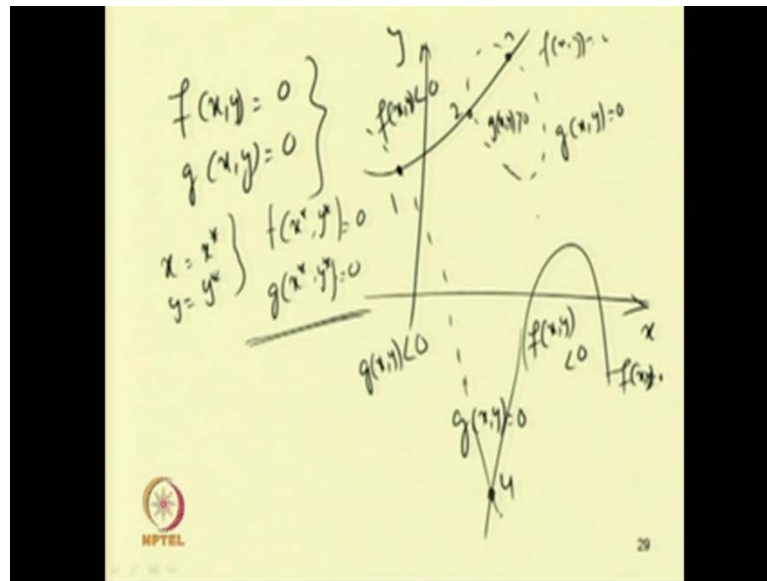 f(x,y) = 0
g(x,y) = 0
x = x*
y = y*
f(x*,y*) = 0
g(x*,y*) = 0
y
f(x,y)<0
2
g(x,y)>0
g(x,y)=0
g(x,y)<0
f(x,y)
<0
x
g(x,y)=0
4
NPTEL
29